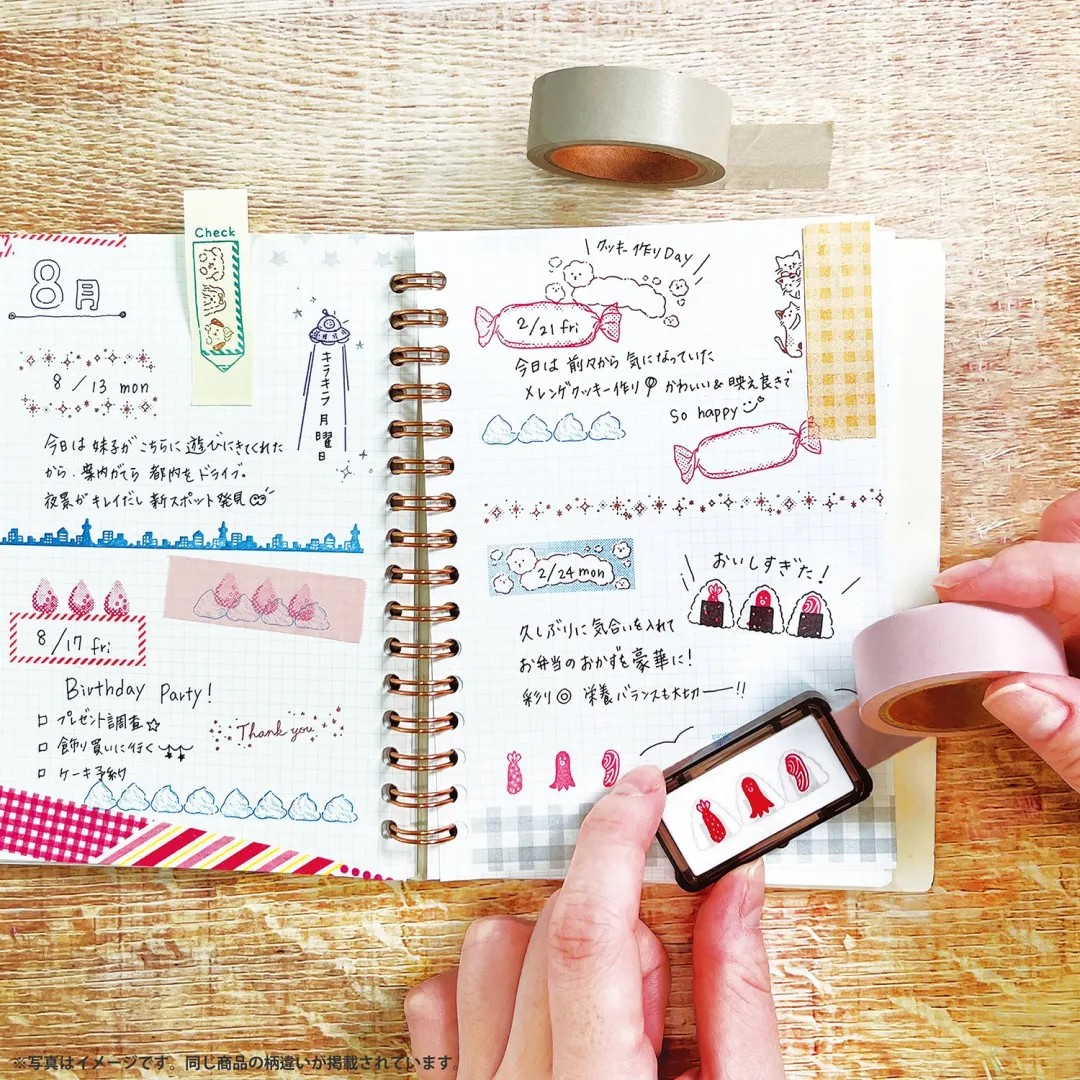 Check
8月
8/13 mon
キラキラ月曜日
今日は妹子がこちらに遊びにきてくれた
から、案内がてら都内をドライブ。
夜景がキレイだし新スポット発見
8/17 fri
Birthday Party!
プレゼント調査☆
飾り買いに行く
ケーキ予約
Thank you
クッキー作りDay
2/21 fri
今日は前々から気になっていた
メレンゲクッキー作り かわいい&映え良きで
So happy
2/24 mon
おいしすぎた!
久しぶりに気合いを入れて
お弁当のおかずを豪華に!
彩り◎ 栄養バランスも大切――!!
※写真はイメージです。同じ商品の柄違いが掲載されています。